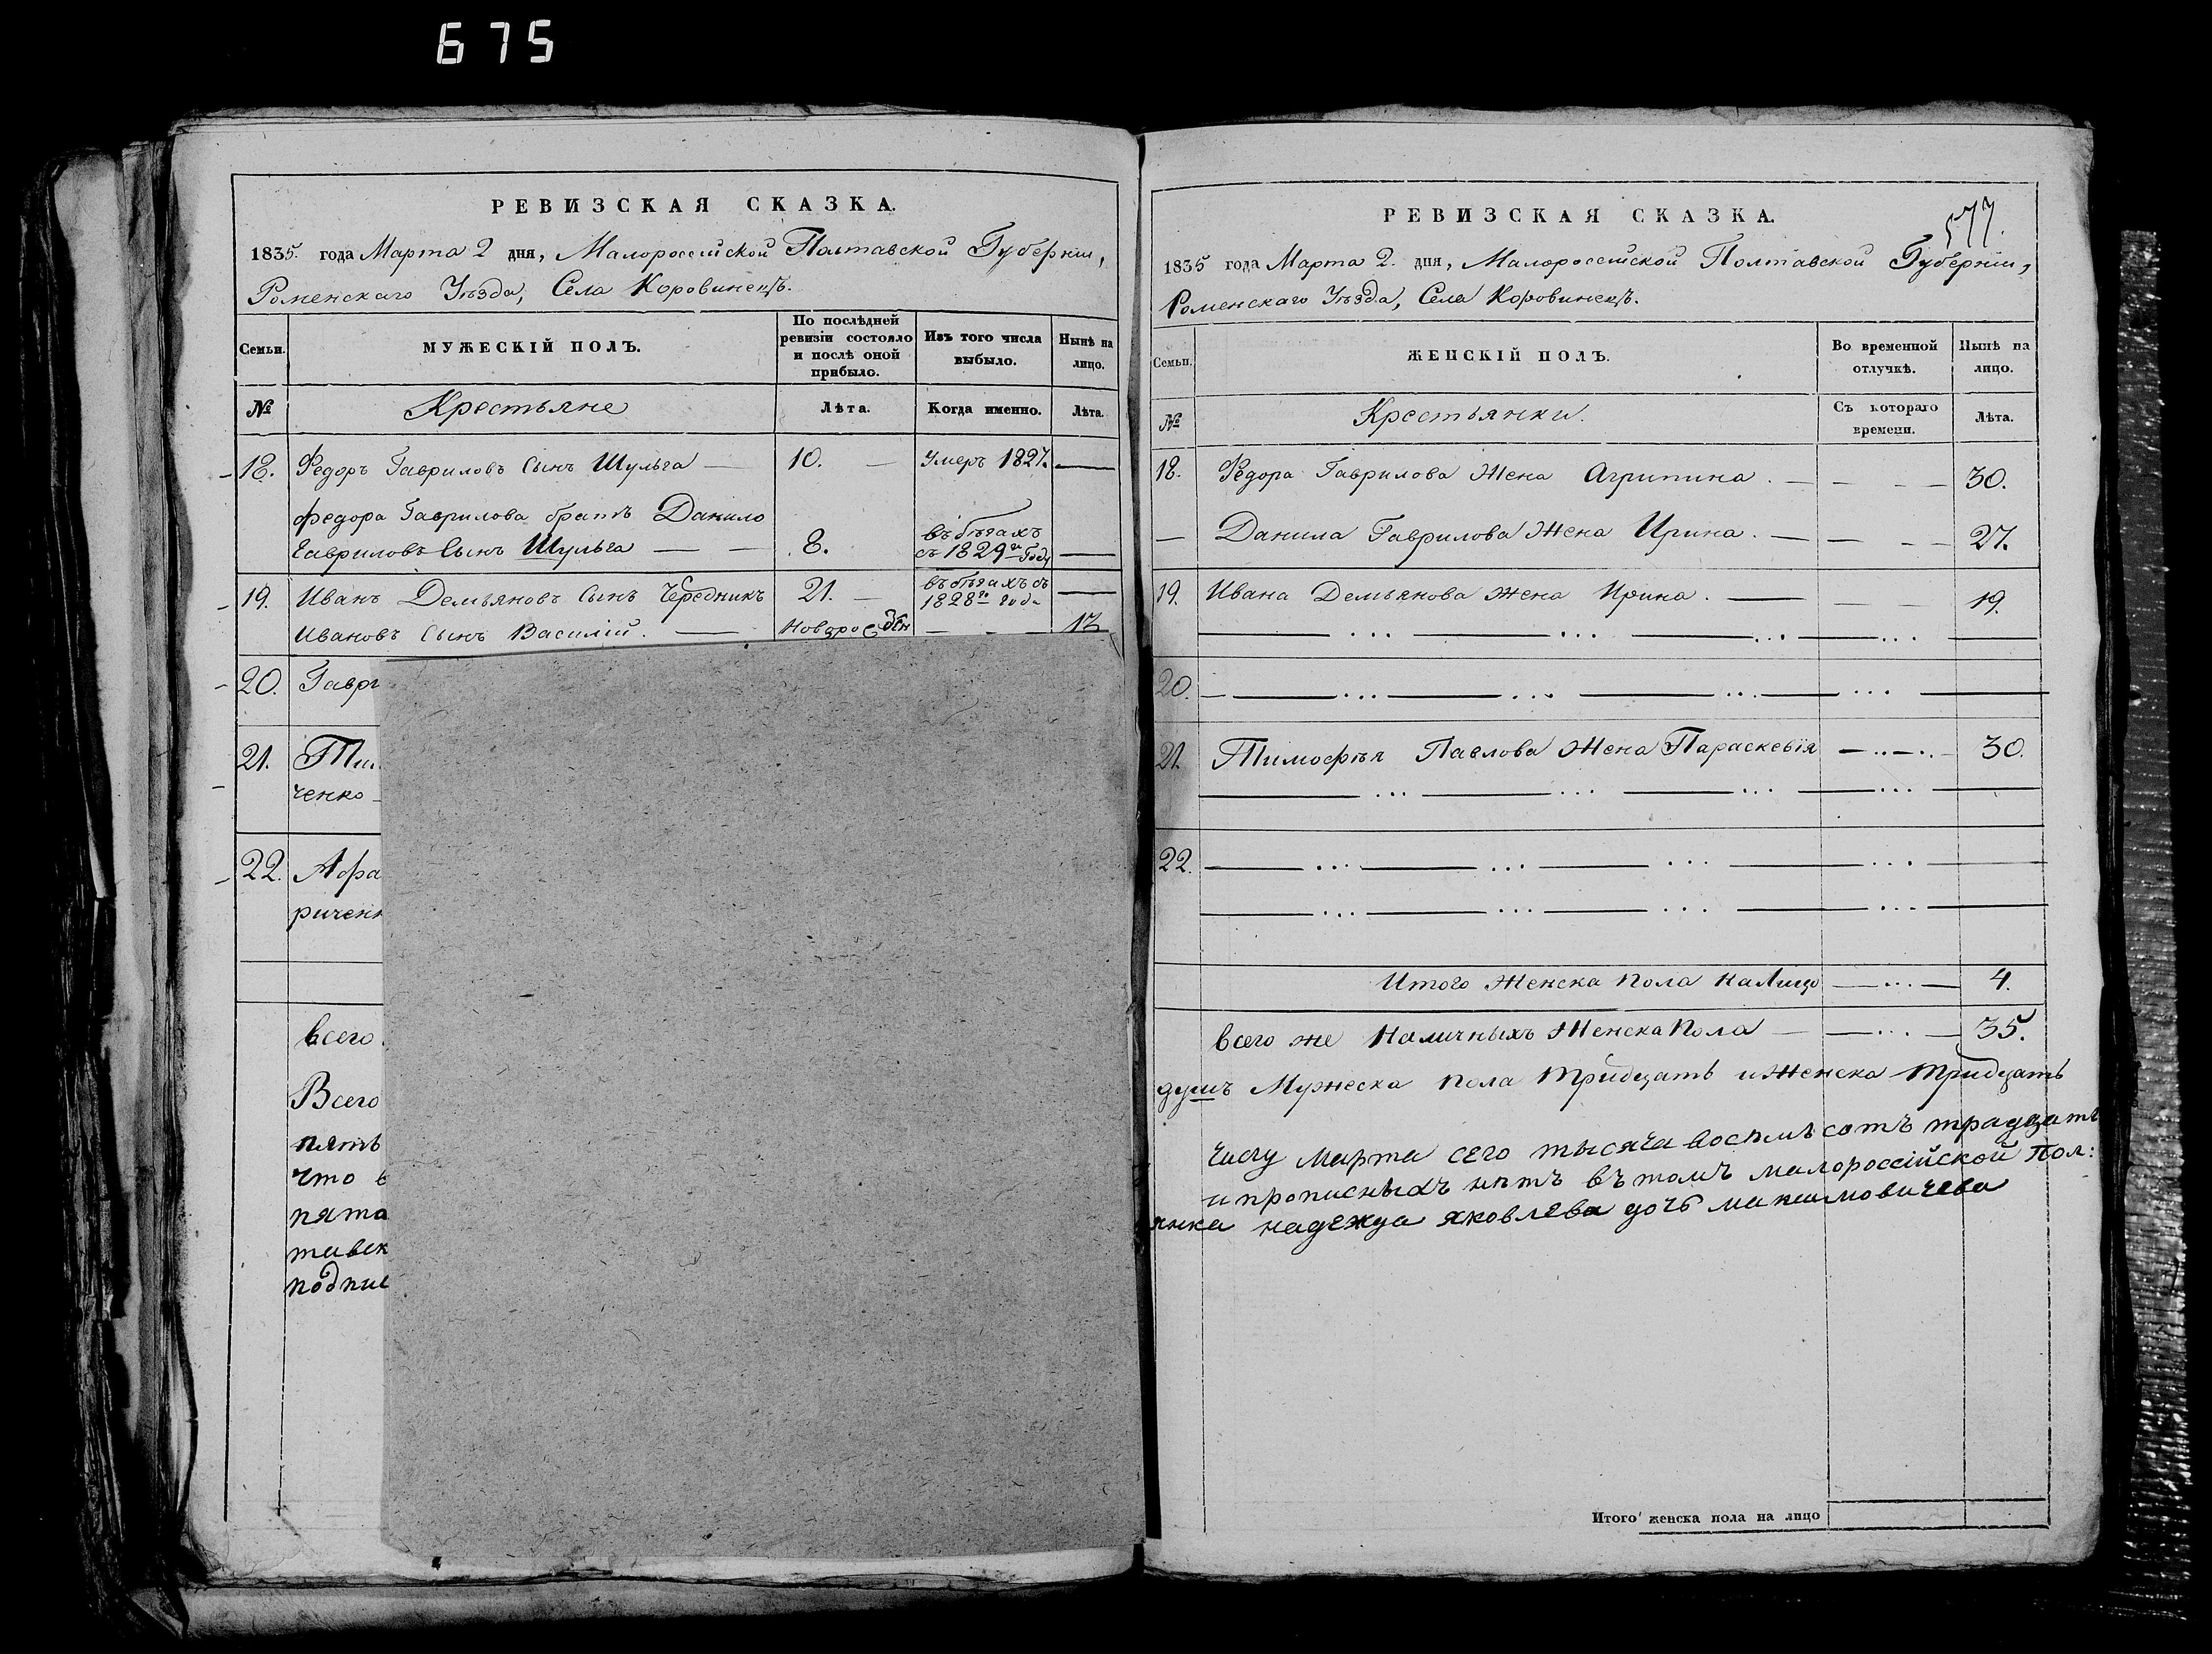 675
РЕВИЗСКАЯ СКАЗКА.
1835. года Марта 2 дня, Малороссийской Полтавской Губернии,
Роменскаго Уѣзда, Села Коровинецъ.
Семьи.
МУЖЕСКІЙ ПОЛЪ.
По послѣдней ревизіи состояло и послѣ оной прибыло.
Изъ того числа выбыло.
Нынѣ на лицо.
№
Крестьяне
Лѣта.
Когда именно.
Лѣта.
18. Федоръ Гавриловъ Сынъ Шульга — 10. — Умеръ 1827. —
Федора Гаврилова братъ Данило
Гавриловъ Сынъ Шульга — — 8. въ бѣгахъ съ 1829го Году —
19. Иванъ Демьяновъ Сынъ Чередникъ 21. — въ бѣгахъ съ 1828го года —
Ивановъ Сынъ Василій. — Новорожден — 12
20. Гавр
21. Тим
ченко —
22. Афа
ричен
всего
Всего
пять
что в
пята
тавск
подпис
577.
РЕВИЗСКАЯ СКАЗКА.
1835 года Марта 2. дня, Малороссийской Полтавской Губернии,
Роменскаго Уѣзда, Села Коровинецъ.
Семьи.
ЖЕНСКІЙ ПОЛЪ.
Во временной отлучкѣ.
Нынѣ на лицо.
№
Крестьянки.
Съ котораго времени.
Лѣта.
18. Федора Гаврилова Жена Агрипина. — — — 30.
— Данила Гаврилова Жена Ирина. — — — 27.
19. Ивана Демьянова Жена Ирина. — — — 19.
20.
21. Тимофѣя Павлова Жена Параскевія — 30.
22.
Итого Женска пола на Лицо — 4.
всего же Наличныхъ Женска Пола — 35.
душъ Мужеска пола тридцать и Женска тридцать
числу Марта сего тысяча восемь сотъ традцать
и прописныхъ нѣтъ въ томъ малороссійской Пол:
янка надежда яковлева дочь максимовичева
Итого женска пола на лицо